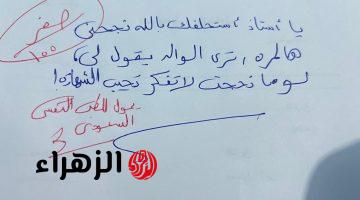 صفر
١٠٠
يا أستاذ أستحلفك بالله نجحني
هالمره، ترى الوالد يقول لي
لو ما نجحت لا تفكر تجيب الشهاده!
يحول للطب النفسي
السعودي
الزهراء